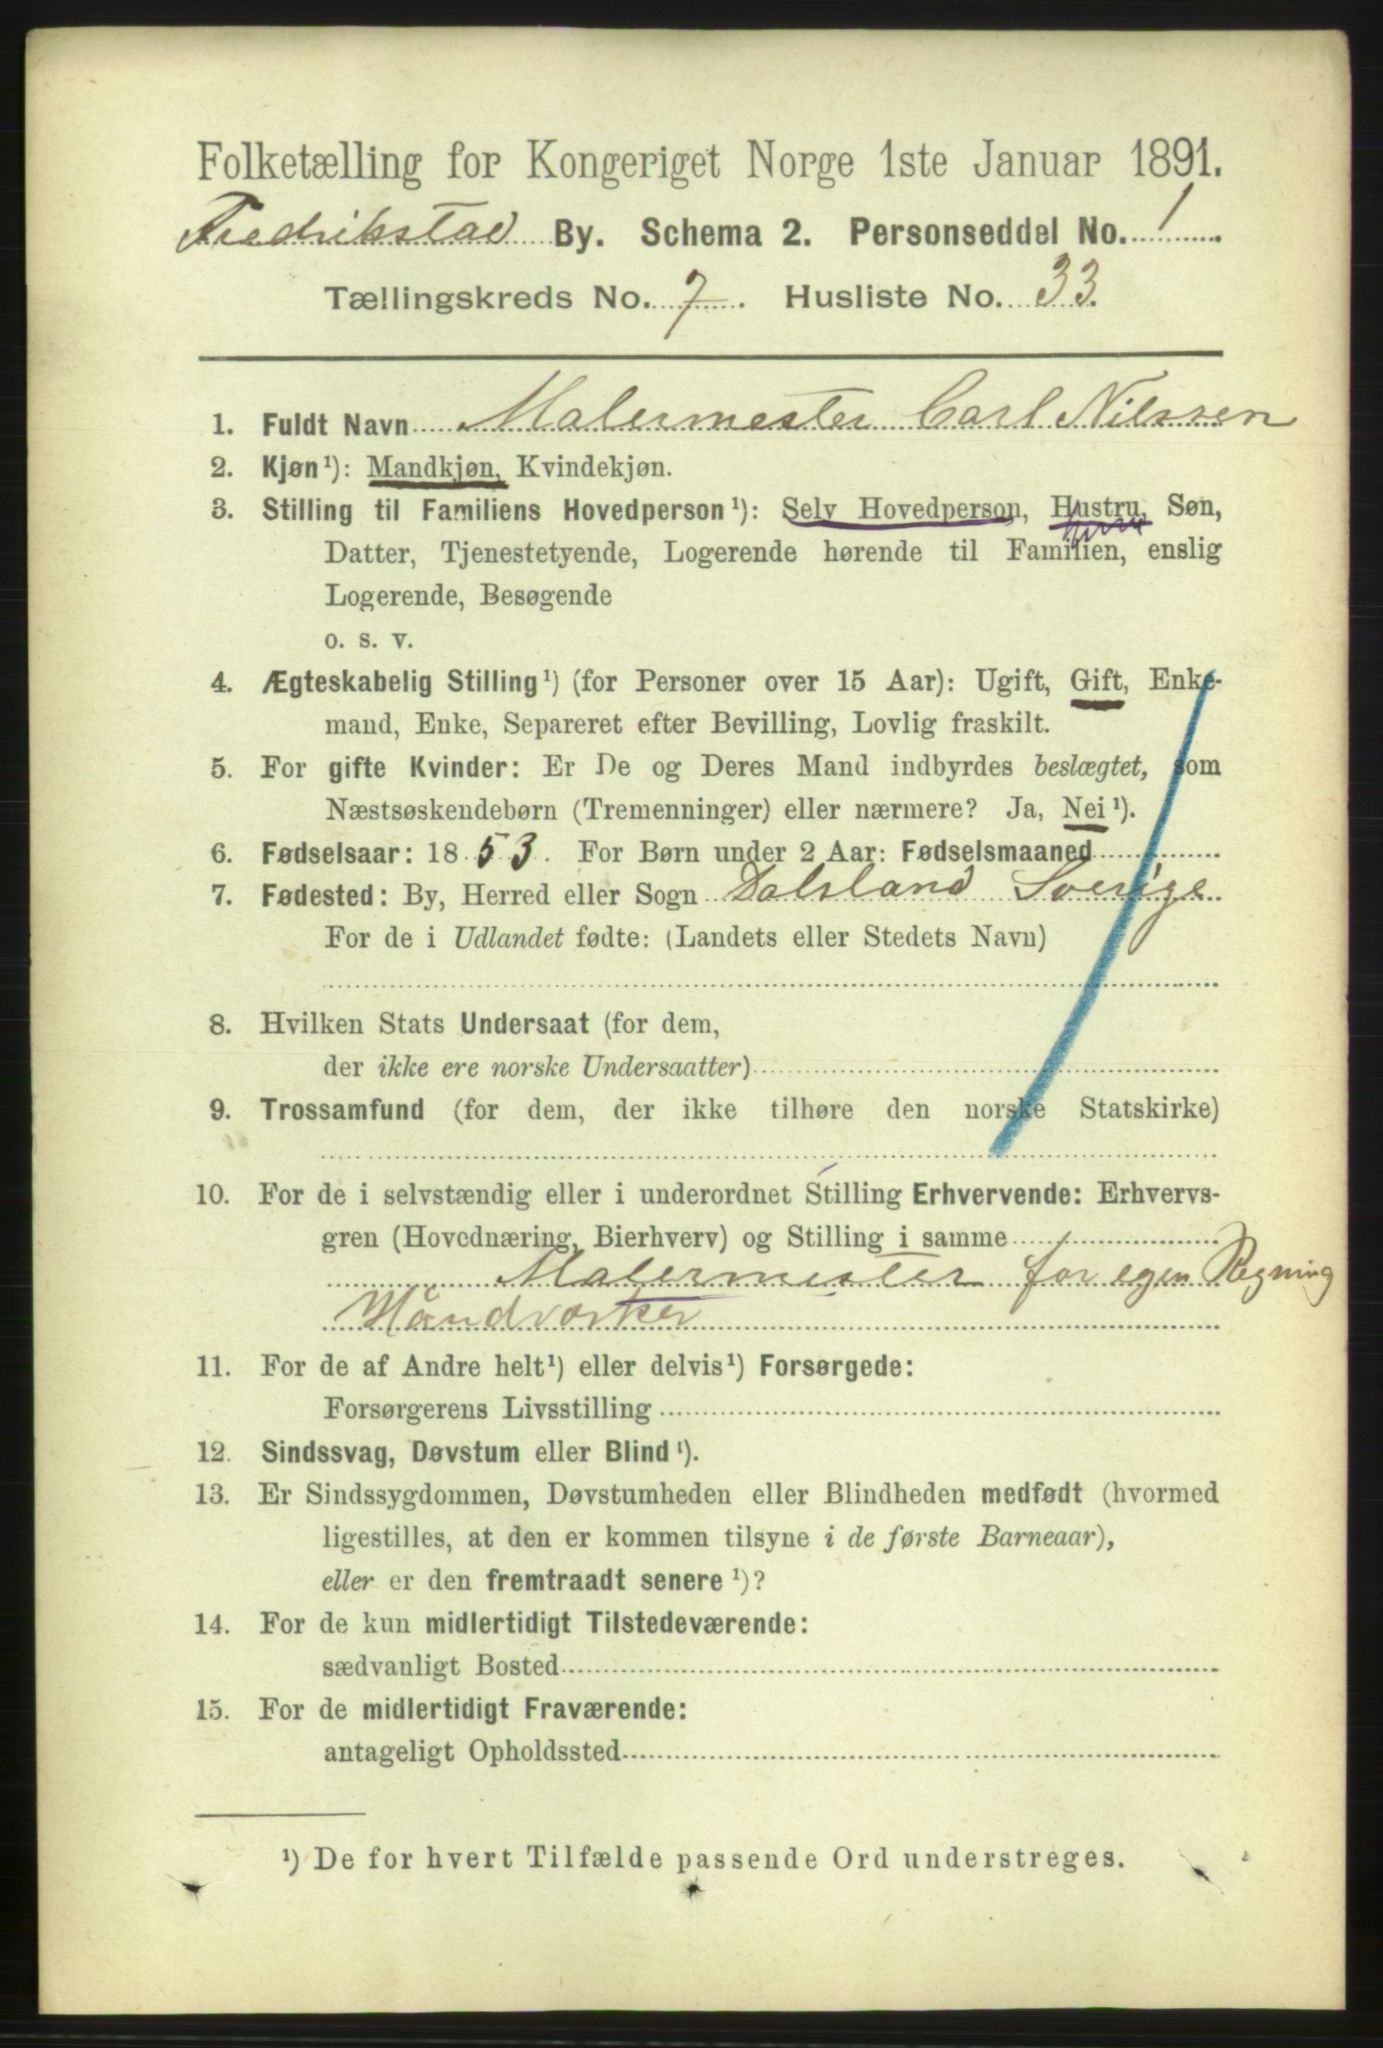 Folketælling for Kongeriget Norge 1ste Januar 1891.
Fredrikstad By. Schema 2. Personseddel No. 1
Tællingskreds No. 7. Husliste No. 33.
1. Fuldt Navn Malermester Carl Nilssen
2. Kjøn¹): Mandkjøn, Kvindekjøn.
3. Stilling til Familiens Hovedperson¹): Selv Hovedperson, Hustru, Søn,
Datter, Tjenestetyende, Logerende hørende til Familien, enslig
Logerende, Besøgende
o. s. v.
4. Ægteskabelig Stilling¹) (for Personer over 15 Aar): Ugift, Gift, Enke-
mand, Enke, Separeret efter Bevilling, Lovlig fraskilt.
5. For gifte Kvinder: Er De og Deres Mand indbyrdes beslægtet, som
Næstsøskendebørn (Tremenninger) eller nærmere? Ja, Nei¹).
6. Fødselsaar: 1853. For Børn under 2 Aar: Fødselsmaaned
7. Fødested: By, Herred eller Sogn Dalsland Sverige
For de i Udlandet fødte: (Landets eller Stedets Navn)
8. Hvilken Stats Undersaat (for dem,
der ikke ere norske Undersaatter)
9. Trossamfund (for dem, der ikke tilhøre den norske Statskirke)
10. For de i selvstændig eller i underordnet Stilling Erhvervende: Erhvervs-
gren (Hovednæring, Bierhverv) og Stilling i samme
Malermester for egen Regning
Håndværker
11. For de af Andre helt¹) eller delvis¹) Forsørgede:
Forsørgerens Livsstilling
12. Sindssvag, Døvstum eller Blind¹).
13. Er Sindssygdommen, Døvstumheden eller Blindheden medfødt (hvormed
ligestilles, at den er kommen tilsyne i de første Barneaar),
eller er den fremtraadt senere¹)?
14. For de kun midlertidigt Tilstedeværende:
sædvanligt Bosted
15. For de midlertidigt Fraværende:
antageligt Opholdssted
¹) De for hvert Tilfælde passende Ord understreges.